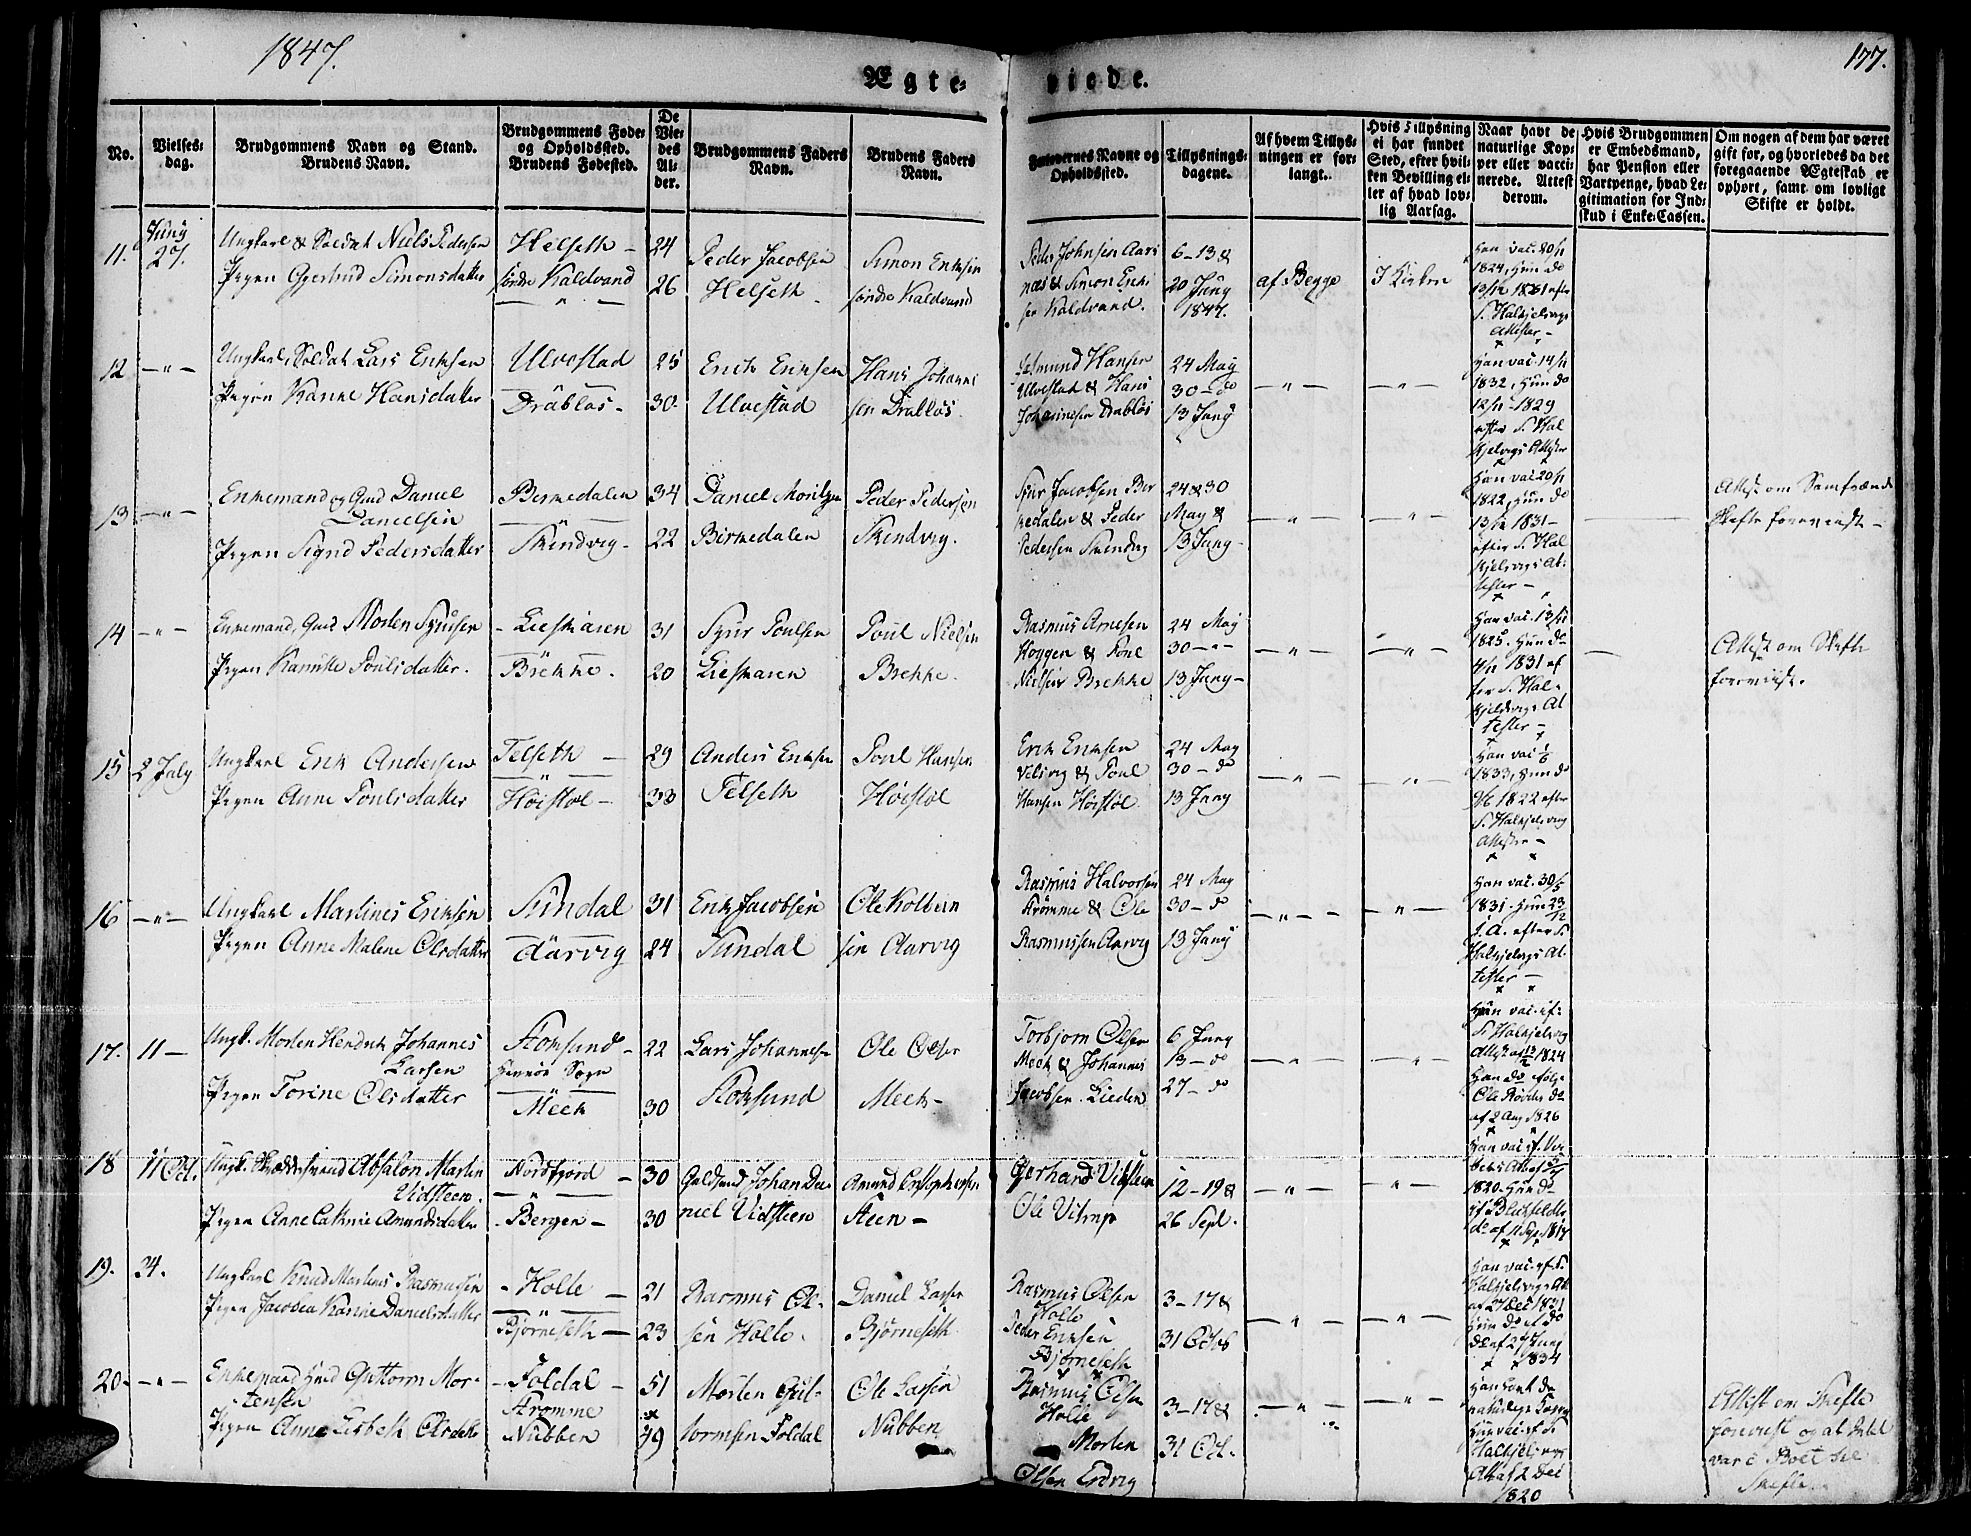 1847.
Ægte-
viede.
177.
No.
Vielses-
dag.
Brudgommens Navn og Stand.
Brudens Navn.
Brudgommens Føde-
og Opholdssted.
Brudens Fødested.
De
Vie-
des
Al-
der.
Brudgommens Faders
Navn.
Brudens Faders
Navn.
Forlovernes Navne og
Opholdssted.
Tillysnings-
dagene.
Af hvem Tillys-
ningen er for-
langt.
Hvis Tillysning
ei har fundet
Sted, efter hvil-
ken Bevilling el-
ler af hvad lov-
lig Aarsag.
Naar havt de
naturlige Kop-
per eller vacci-
nerede. Attest
derom.
Hvis Brudgommen
er Embedsmand,
har Pension eller
Vartpenge, hvad Le-
gitimation for Ind-
skud i Enke-Cassen.
Om nogen af dem har været
gift før, og hvorledes da det
foregaaende Ægteskab er
ophørt, samt om lovligt
Skifte er holdt.
11.
Juny
27.
Ungkarl & Soldat Niels Pedersen
Pigen Gjertrud Simonsdatter
Helseth -
søndre Kaldvand
24
26
Peder Jacobsen
Helseth
Simon Eriksen
søndre Kaldvand
Peder Johnsen Aars
næs & Simon Erik
sen Kaldvand.
6-13 &
20 Juny
1847.
af Begge
I Kirken
Han vac. 20/11
1824, Hun do
13/12 1821 efter
S. Halkjelsvigs
Attester -
12
- " -
Ungkarl, Soldat Lars Eriksen
Pigen Karine Hansdatter
Ulvestad
Drabløs -
25
30.
Erich Eriksen
Ulvestad
Hans Johanne
sen Drabløs.
Hansen
Ulvestad & Hans
Johannesen Drabløs
24 May
30 - do
13 Juny
- " -
- " -
Han vac. 14/11
1832, Hun do
12/11 1829
efter S. Hal
kjelsvigs Attester
13
- " -
Enkemand og Gmd Daniel
Danielsen
Pigen Sigrid Pedersdatter
Birkedalen
Skindvig -
34
22
Daniel Moritzen
Birkedalen
Peder Pedersen
Skindvig.
Sjur Jacobsen Bir
kedalen & Peder
Pedersen Skindvig
24 & 30
May &
13 Juny
- " -
- " -
Han vac 20/11
1822, Hun do
13/12 1831 -
efter S. Hal
kjelsvigs At-
tester -
Attest om Samfrænde
Skifte foreviist -
14
- " -
Enkemand, Gmd Morten Sjursen
Pigen Karine Poulsdatter.
- Lieskaren
Brekke.
31
20
Sjur Poulsen
Lieskaren
Poul Nielsen
Brekke.
Rasmus Arnesen
Koppen & Poul
Nielsen Brekke
24 May
30 - " -
13 Juny -
- " -
- " -
Han vac. 13/11
1825. Hun do
4/12 1831 ef
ter S. Hal-
kjelsvigs At
tester -
Attest om Skifte
foreviist.
15
2 July
Ungkarl Erik Andersen
Pigen Anne Poulsdatter
Felseth -
Høistøl -
29
33
Anders Eriksen
Felseth
Poul Hansen
Høistøl
Erik Eriksen
Velsvig & Poul
Hansen Høistøl.
24 May
30 - do
13 Juny
- " -
- " -
Han vac 1/6
1833, Hun do
9/6 1822 efter
S. Halkjelsvig
Attester -
16
- " -
Ungkarl Martines Eriksen
Pigen Anne Malene Olsdatter
Sundal
Aarvig
31
24
Erik Jacobsen
Sundal
Ole Kolbein
sen Aarvig
Rasmus Halvorsen
Krømme & Ole
Rasmussen Aarvig
24 May
30 - do
13 Juny
- " -
- " -
Han vac. 30/5
1831. Hun 23/12
s. A. efter S.
Halkjelsvigs At-
tester -
17.
11 -
Ungk. Morten Hendrik Johannes
Larsen
Pigen Torine Olsdatter
Stoksund -
Herrøe Sogn
Meek
22
30
Lars Johannesen
Stoksund
Ole Olsen
Meek -
Torbjørn Olsen
Meek & Johannes
Jacobsen Lieden
6 Juny
13 - do
27 - do
- " -
- " -
Hun vac. ef:
S. Halkjelsvig
1824
Han do følge
Ole do
af 2 Aug 1826
18
11 Oct.
Ungk. Absalon Martin
Vidsteen.
Pigen Anne Cathrine Amundsdatter
Nordfjord -
- Bergen -
30
30
Johan Da-
niel Vidsteen
Amund Christophersen
Steen -
Gerhard Vidsteen
Ole
12-19 &
26 Sept.
- " -
- " -
1820. Hun do
19.
24.
Ungkarl Knud Martinus Rasmussen
Pigen Jacobea Karine Danielsdatter
- Holte -
Bjørneseth -
21
23
Rasmus Ol-
sen Holte.
Daniel Larsen
Bjørneseth
Rasmus Olsen
Holte
Peder Eriksen
Bjørneseth
3-17 &
31 Octob
- " -
- " -
Han vac. ef. S.
Halkjelsvigs Att
af 27 Dec 1831
Hun do ef do
do af 27 Juny
1834
20.
- " -
Enkemand Gmd Guttorm Mor-
tensen
Pigen Anne Lisbeth Olsdatter
- Foldal -
Strømme
Nubben
51
49
Morten Gut-
tormsen Foldal
Ole Larsen
Nubben
Rasmus Olsen
Holte
Morten
Olsen Erdvig
3-17 &
31 Oct.
- " -
- " -
Han havt de
naturlige
Hun vac. ef S.
Halkjelsvigs
Att af 2 Dec
1820
Attest om Skifte
foreviist og at Intet
var i Boet til
Skifte.